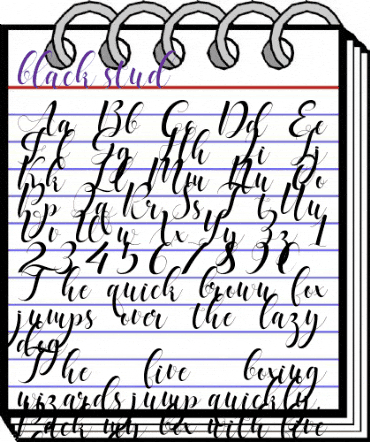 black stud
Aa Bb Cc Dd Ee
Ff Gg Hh Ii Jj
Kk Ll Mm Nn Oo
Pp Qq Rr Ss Tt Uu
Vv Ww Xx Yy Zz 1
2 3 4 5 6 7 8 9 0
The quick brown fox
jumps over the lazy
dog
The five boxing
wizards jump quickly.
Pack my box with five